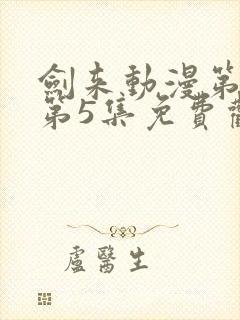 劍来動漫第
第5集免費
盧醫生